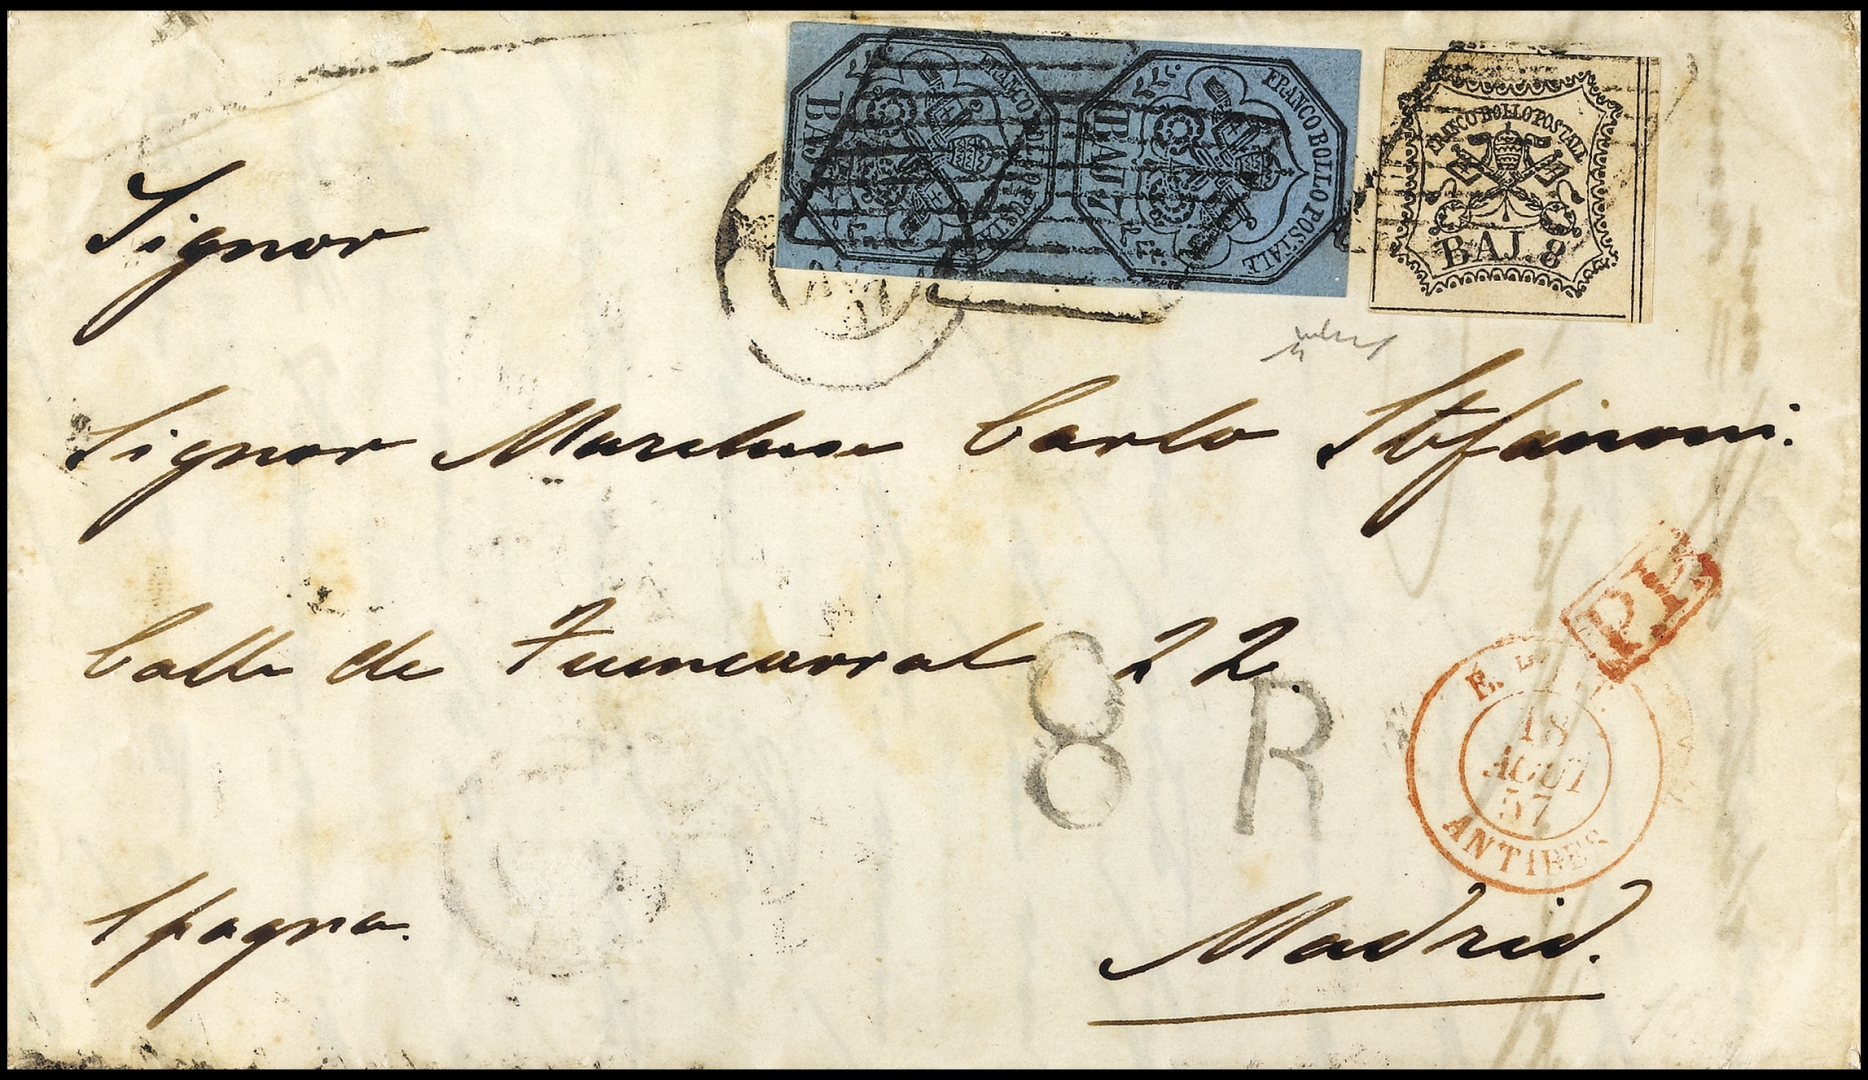 FRANCO BOLLO POSTALE
BAJ. 7
FRANCO BOLLO POSTALE
BAJ. 7
FRANCO BOLLO POSTALE
BAJ. 8
Signor
Signor Marchese Carlo Stefanoni.
Calle de Fuencarral 22.
8 R
P.P.
18
AOUT
57
ANTIBES
Spagna.
Madrid.